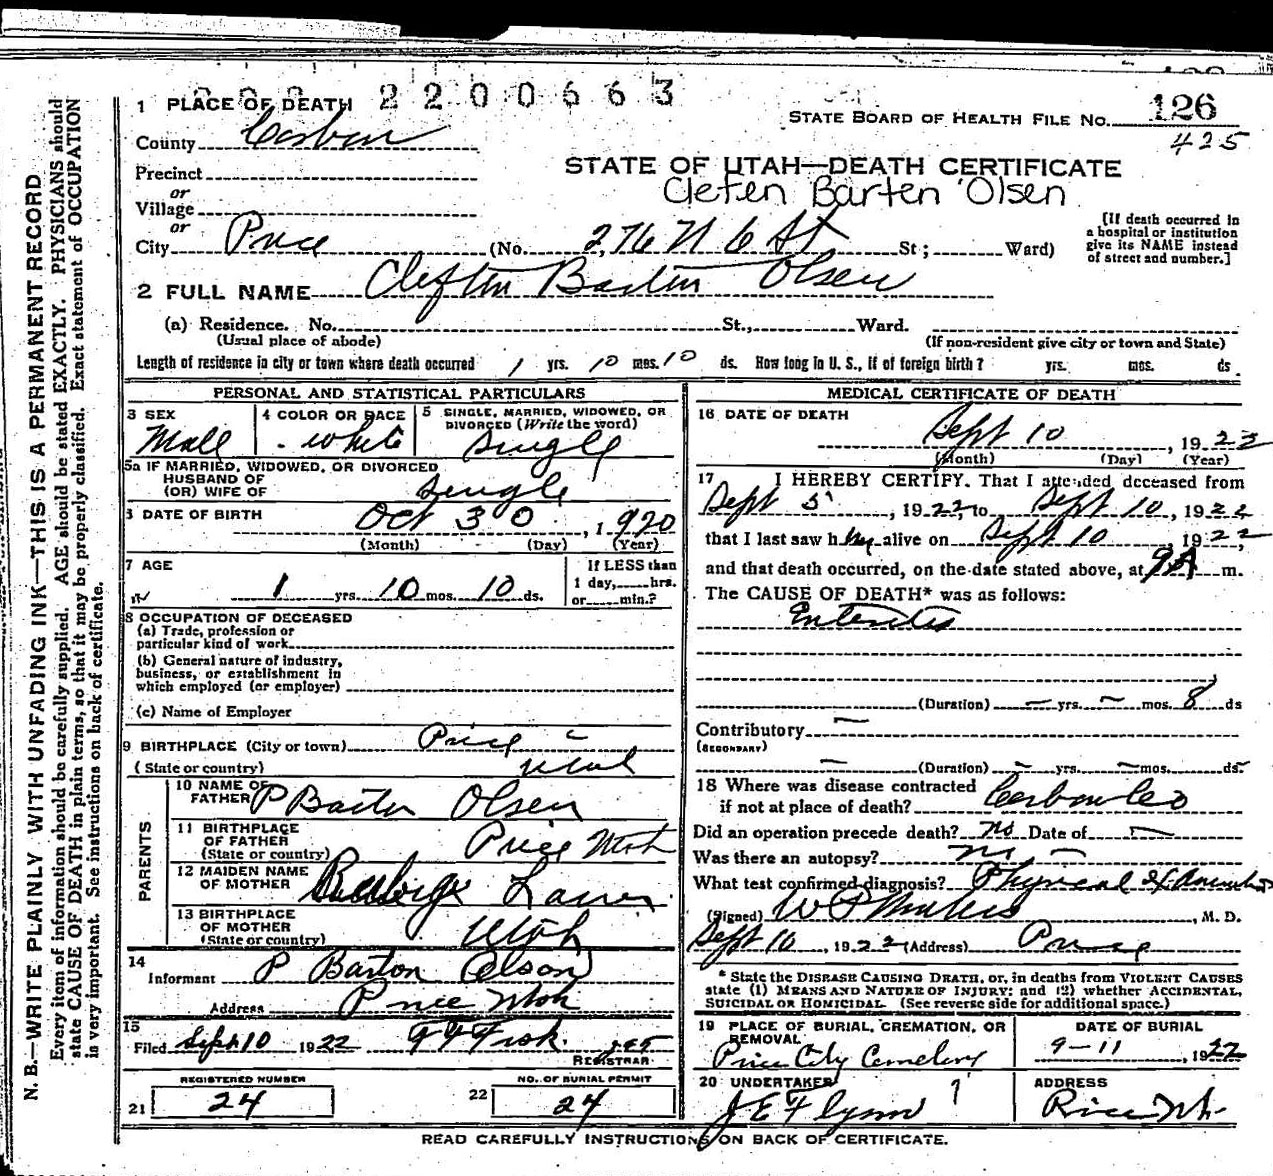 2200663
1 PLACE OF DEATH
STATE BOARD OF HEALTH FILE No. 126
425
County Carbon
STATE OF UTAH—DEATH CERTIFICATE
Precinct
Cleften Barten Olsen
or
Village
or
City Price (No. 276 N 6 St St; Ward)
[If death occurred in a hospital or institution give its NAME instead of street and number.]
2 FULL NAME Clefton Barton Olsen
(a) Residence. No. St., Ward.
(Usual place of abode) (If non-resident give city or town and State)
Length of residence in city or town where death occurred 1 yrs. 10 mos. 10 ds. How long in U. S., if of foreign birth? yrs. mos. ds.
PERSONAL AND STATISTICAL PARTICULARS
3 SEX Male
4 COLOR OR RACE white
5 SINGLE, MARRIED, WIDOWED, OR DIVORCED (Write the word) single
5a IF MARRIED, WIDOWED, OR DIVORCED
HUSBAND OF
(OR) WIFE OF single
DATE OF BIRTH Oct 30, 1920
(Month) (Day) (Year)
7 AGE
1 yrs. 10 mos. 10 ds.
If LESS than
1 day, hrs.
or min.?
8 OCCUPATION OF DECEASED
(a) Trade, profession or
particular kind of work
(b) General nature of industry,
business, or establishment in
which employed (or employer)
(c) Name of Employer
9 BIRTHPLACE (City or town) Price
(State or country) Utah
PARENTS
10 NAME OF FATHER P Barton Olsen
11 BIRTHPLACE
OF FATHER
(State or country) Price Utah
12 MAIDEN NAME
OF MOTHER
13 BIRTHPLACE
OF MOTHER
(State or country) Utah
14
Informant P Barton Olson
Address Price Utah
15
Filed Sept 10 1922 F F Fisk
REGISTRAR
REGISTERED NUMBER
21 24
NO. OF BURIAL PERMIT
22 24
MEDICAL CERTIFICATE OF DEATH
16 DATE OF DEATH
Sept 10, 1922
(Month) (Day) (Year)
17 I HEREBY CERTIFY. That I attended deceased from
Sept 5, 1922, to Sept 10, 1922
that I last saw him alive on Sept 10, 1922,
and that death occurred, on the date stated above, at 9A m.
The CAUSE OF DEATH* was as follows:
Enteritis
(Duration) — yrs. — mos. 8 ds
Contributory —
(SECONDARY)
— (Duration) — yrs. — mos. ds.
18 Where was disease contracted
if not at place of death? Carbon Co
Did an operation precede death? no Date of —
Was there an autopsy? no —
What test confirmed diagnosis? Physical Examination
(Signed) , M. D.
Sept 10, 1922 (Address) Price
* State the DISEASE CAUSING DEATH, or, in deaths from VIOLENT CAUSES
state (1) MEANS AND NATURE OF INJURY; and (2) whether ACCIDENTAL,
SUICIDAL OR HOMICIDAL. (See reverse side for additional space.)
19 PLACE OF BURIAL, CREMATION, OR
REMOVAL
Price City Cemetery
DATE OF BURIAL
9-11, 1922
20 UNDERTAKER
J E Flynn
ADDRESS
Price Ut.
READ CAREFULLY INSTRUCTIONS ON BACK OF CERTIFICATE.
N. B.—WRITE PLAINLY WITH UNFADING INK—THIS IS A PERMANENT RECORD
Every item of information should be carefully supplied. AGE should be stated EXACTLY. PHYSICIANS should
state CAUSE OF DEATH in plain terms, so that it may be properly classified. Exact statement of OCCUPATION
is very important. See instructions on back of certificate.